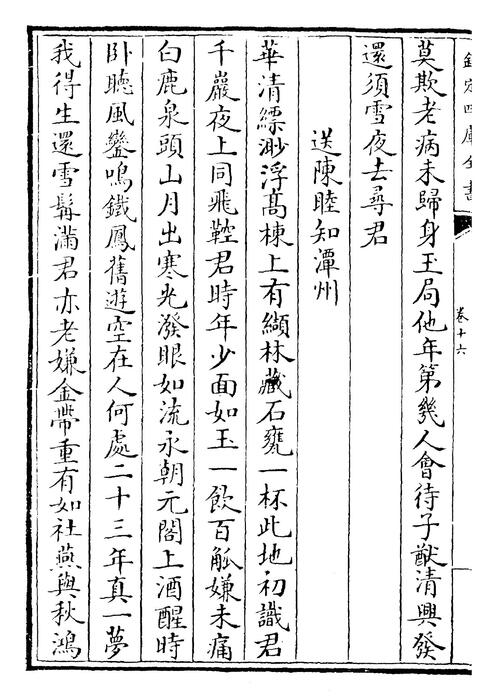 欽定四庫全書
卷十六
莫欺老病未歸身玉局他年第幾人會待子猷清興發
還須雪夜去尋君
送陳睦知潭州
華清縹渺浮髙棟上有纈林藏石甕一杯此地初識君
千巖夜上同飛鞚君時年少面如玉一飲百觚嫌未痛
白鹿泉頭山月出寒光潑眼如流汞朝元閣上酒醒時
卧聽風鑾鳴鐵鳳舊遊空在人何處二十三年真一夢
我得生還雪髯滿君亦老嫌金帶重有如社燕與秋鴻